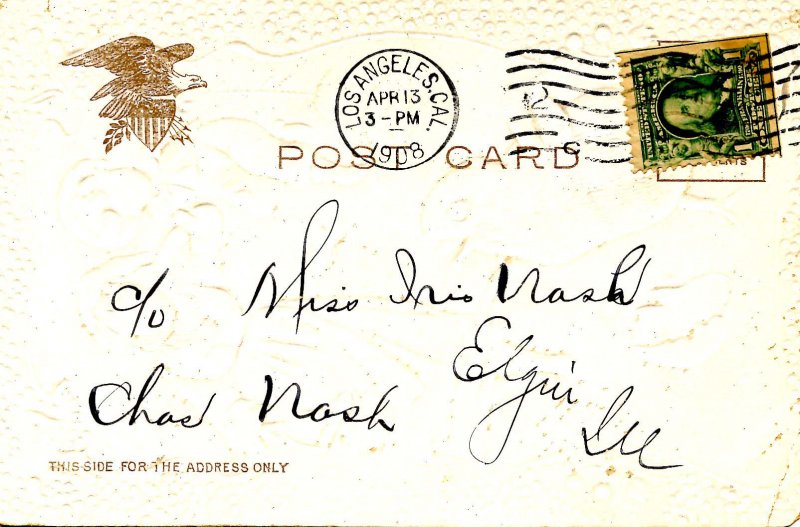 LOS ANGELES, CAL.
APR 13
3-PM
1908
POST CARD
c/o Miss Iris Nash
Chas Nash
Elgin
Ill
THIS SIDE FOR THE ADDRESS ONLY